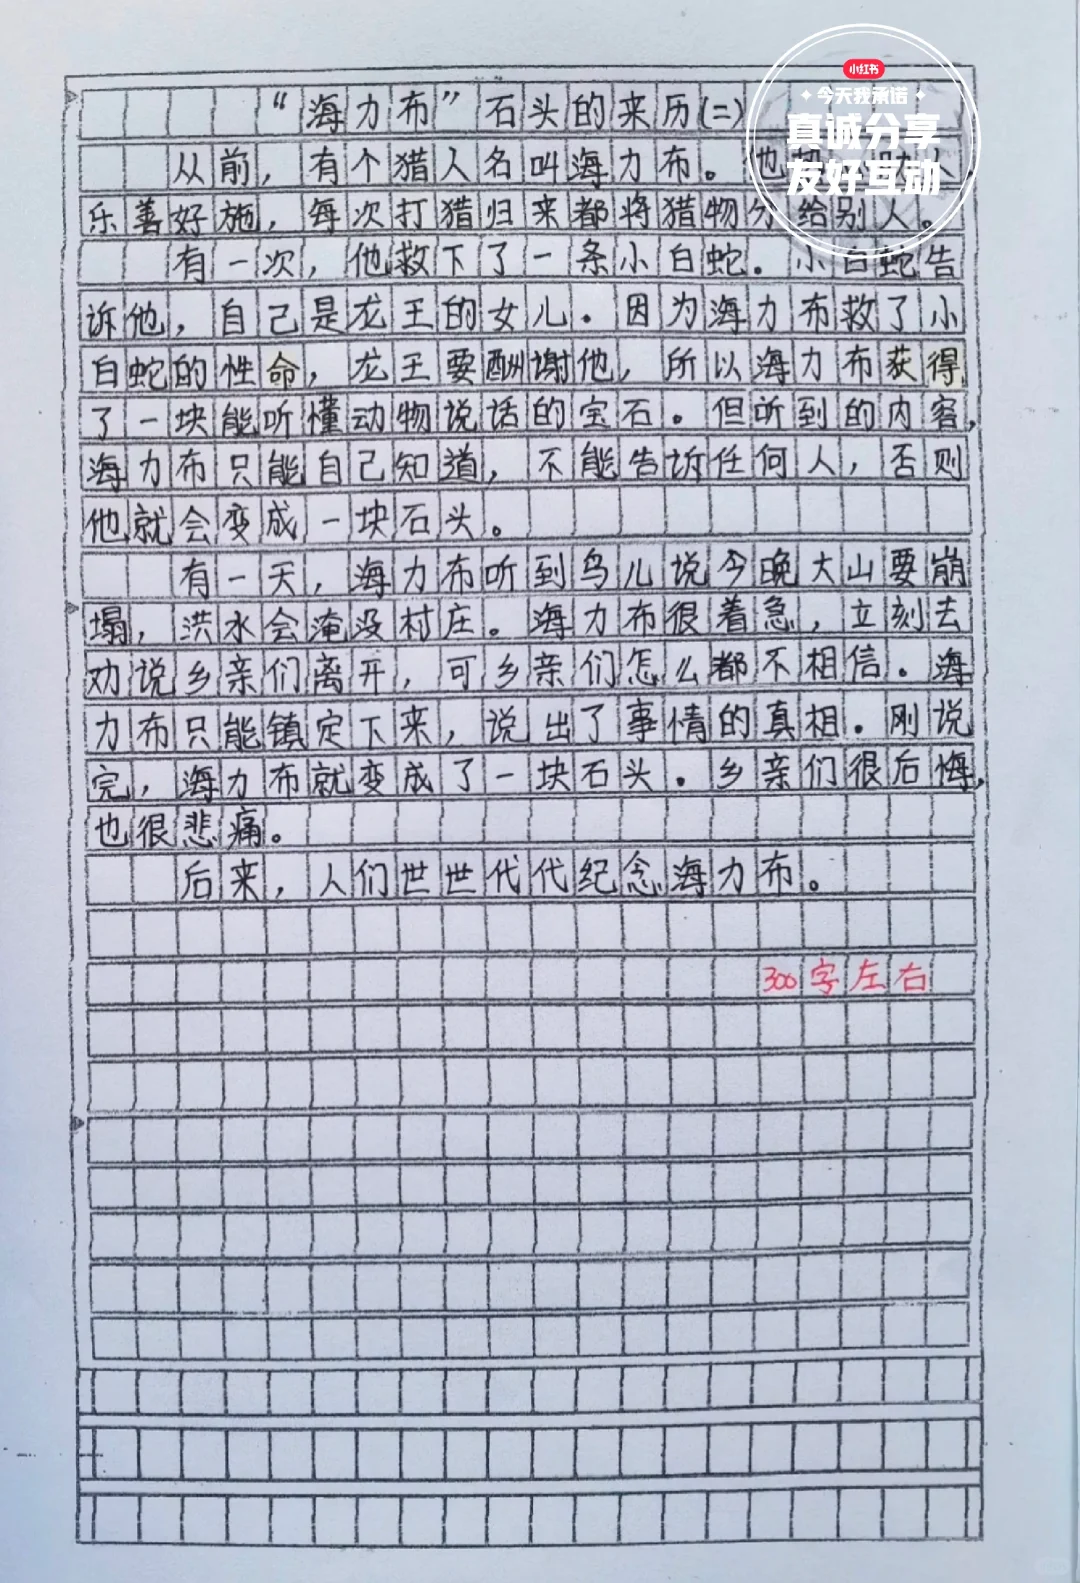 “海力布”石头的来历(二)
小红书
今天我承诺
真诚分享
友好互动
从前，有个猎人名叫海力布。他
乐善好施，每次打猎归来都将猎物分给别人。
有一次，他救下了一条小白蛇。小白蛇告
诉他，自己是龙王的女儿。因为海力布救了小
白蛇的性命，龙王要酬谢他，所以海力布获得
了一块能听懂动物说话的宝石。但听到的内容，
海力布只能自己知道，不能告诉任何人，否则
他就会变成一块石头。
有一天，海力布听到鸟儿说今晚大山要崩
塌，洪水会淹没村庄。海力布很着急，立刻去
劝说乡亲们离开，可乡亲们怎么都不相信。海
力布只能镇定下来，说出了事情的真相。刚说
完，海力布就变成了一块石头。乡亲们很后悔，
也很悲痛。
后来，人们世世代代纪念海力布。
300字左右